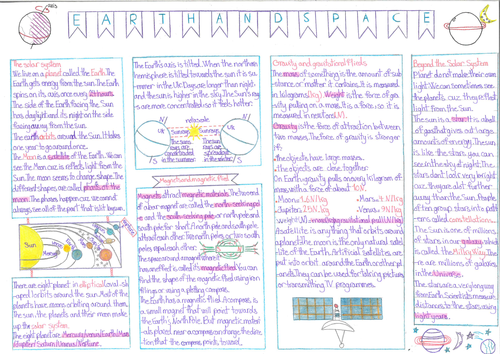 EARTH AND SPACE
The solar system
We live on a planet called the Earth. The
Earth gets energy from the sun. The Earth
spins on its axis once every 24 hours.
The side of the Earth facing the Sun
has daylight and its night on the side
facing away from the sun.
The earth orbits around the Sun. It takes
one year to go around once.
The Moon is a satellite of the Earth. We can
see the Moon cuz it reflect light from the
Sun. The moon seems to change shape. The
different shapes are called phases of the
moon. The phases happen cuz we cannot
always see all of the part that is lit
Sun
There are eight planets in elliptical (oval-sh
aped) orbits around the sun. Most of the
planets have moons orbiting around them.
The sun, the planets and their moons make
up the solar system.
The eight planets are Mercury/Venus/Earth/Mars
/Jupiter/Saturn/Uranus/Neptune.
The Earth's axis is tilted. When the northern
hemisphere is tilted towards the sun it is su-
mmer in the UK. Days are longer than night
and the sun is higher in the sky. The Sun's ray
s are more concentrated so it feels hotter.
UK
UK
in the summer
in the winter
Magnets and magnetic field
Magnets attract magnetic materials. The two end
s of a bar magnet are called the north-seeking pole
and the south-seeking pole or north pole and
south pole for short. A north and a south pole
attract each other. Two north poles or two south
poles repel each other.
The space around a magnet where it
has an effect is called its magnetic field. You can
find the shape of the magnetic field using iron
filings or using a plotting compass.
The Earth has a magnetic field. A compass is
a small magnet that will point towards
the Earth's North Pole. But magnetic mater-
ials placed near a compass can change the direc-
tion that the compass points towards.
Gravity and gravitational fields
The mass of something is the amount of sub-
stance or matter it contains. It is measured
in kilograms (kg). Weight is the force of gra-
vity pulling on a mass. It is a force so it is
measured in newtons (N).
Gravity is the force of attraction between
two masses. The force of gravity is stronger
if:
the objects have large masses.
the objects are close together.
On Earth gravity pulls on every kilogram of
mass with a force of about 10N.
A satellite is anything that orbits around
a planet. The moon is the only natural satel-
lite of the Earth. Artificial satellites are
put into orbit around the Earth or other pl-
anets. They can be used for taking pictures
or transmitting TV programmes.
Beyond the Solar System
Planets do not make their own
light. We can sometimes see
the planets cuz they reflect
light from the Sun.
The sun is a star. It is a ball
of gas that gives out large
amounts of energy. The sun
is like the stars you can
see in the sky at night. The
stars don't look very bright
cuz they are a lot further
away than the Sun. People
often group stars into patt-
erns called constellations.
The Sun is one of millions
of stars in our galaxy, which
is called the Milky Way. The-
re are millions of galaxies
in the Universe.
The stars are a very long way
from Earth. Scientists measure
distances to the stars using
light years.